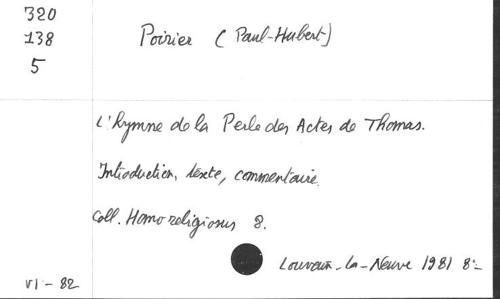 320
138
5
Poirier (Paul-Hubert)
L'Hymne de la Perle des Actes de Thomas.
Introduction, texte, commentaire.
Coll. Homo religiosus 8.
Louvain-la-Neuve 1981 8º
VI-82